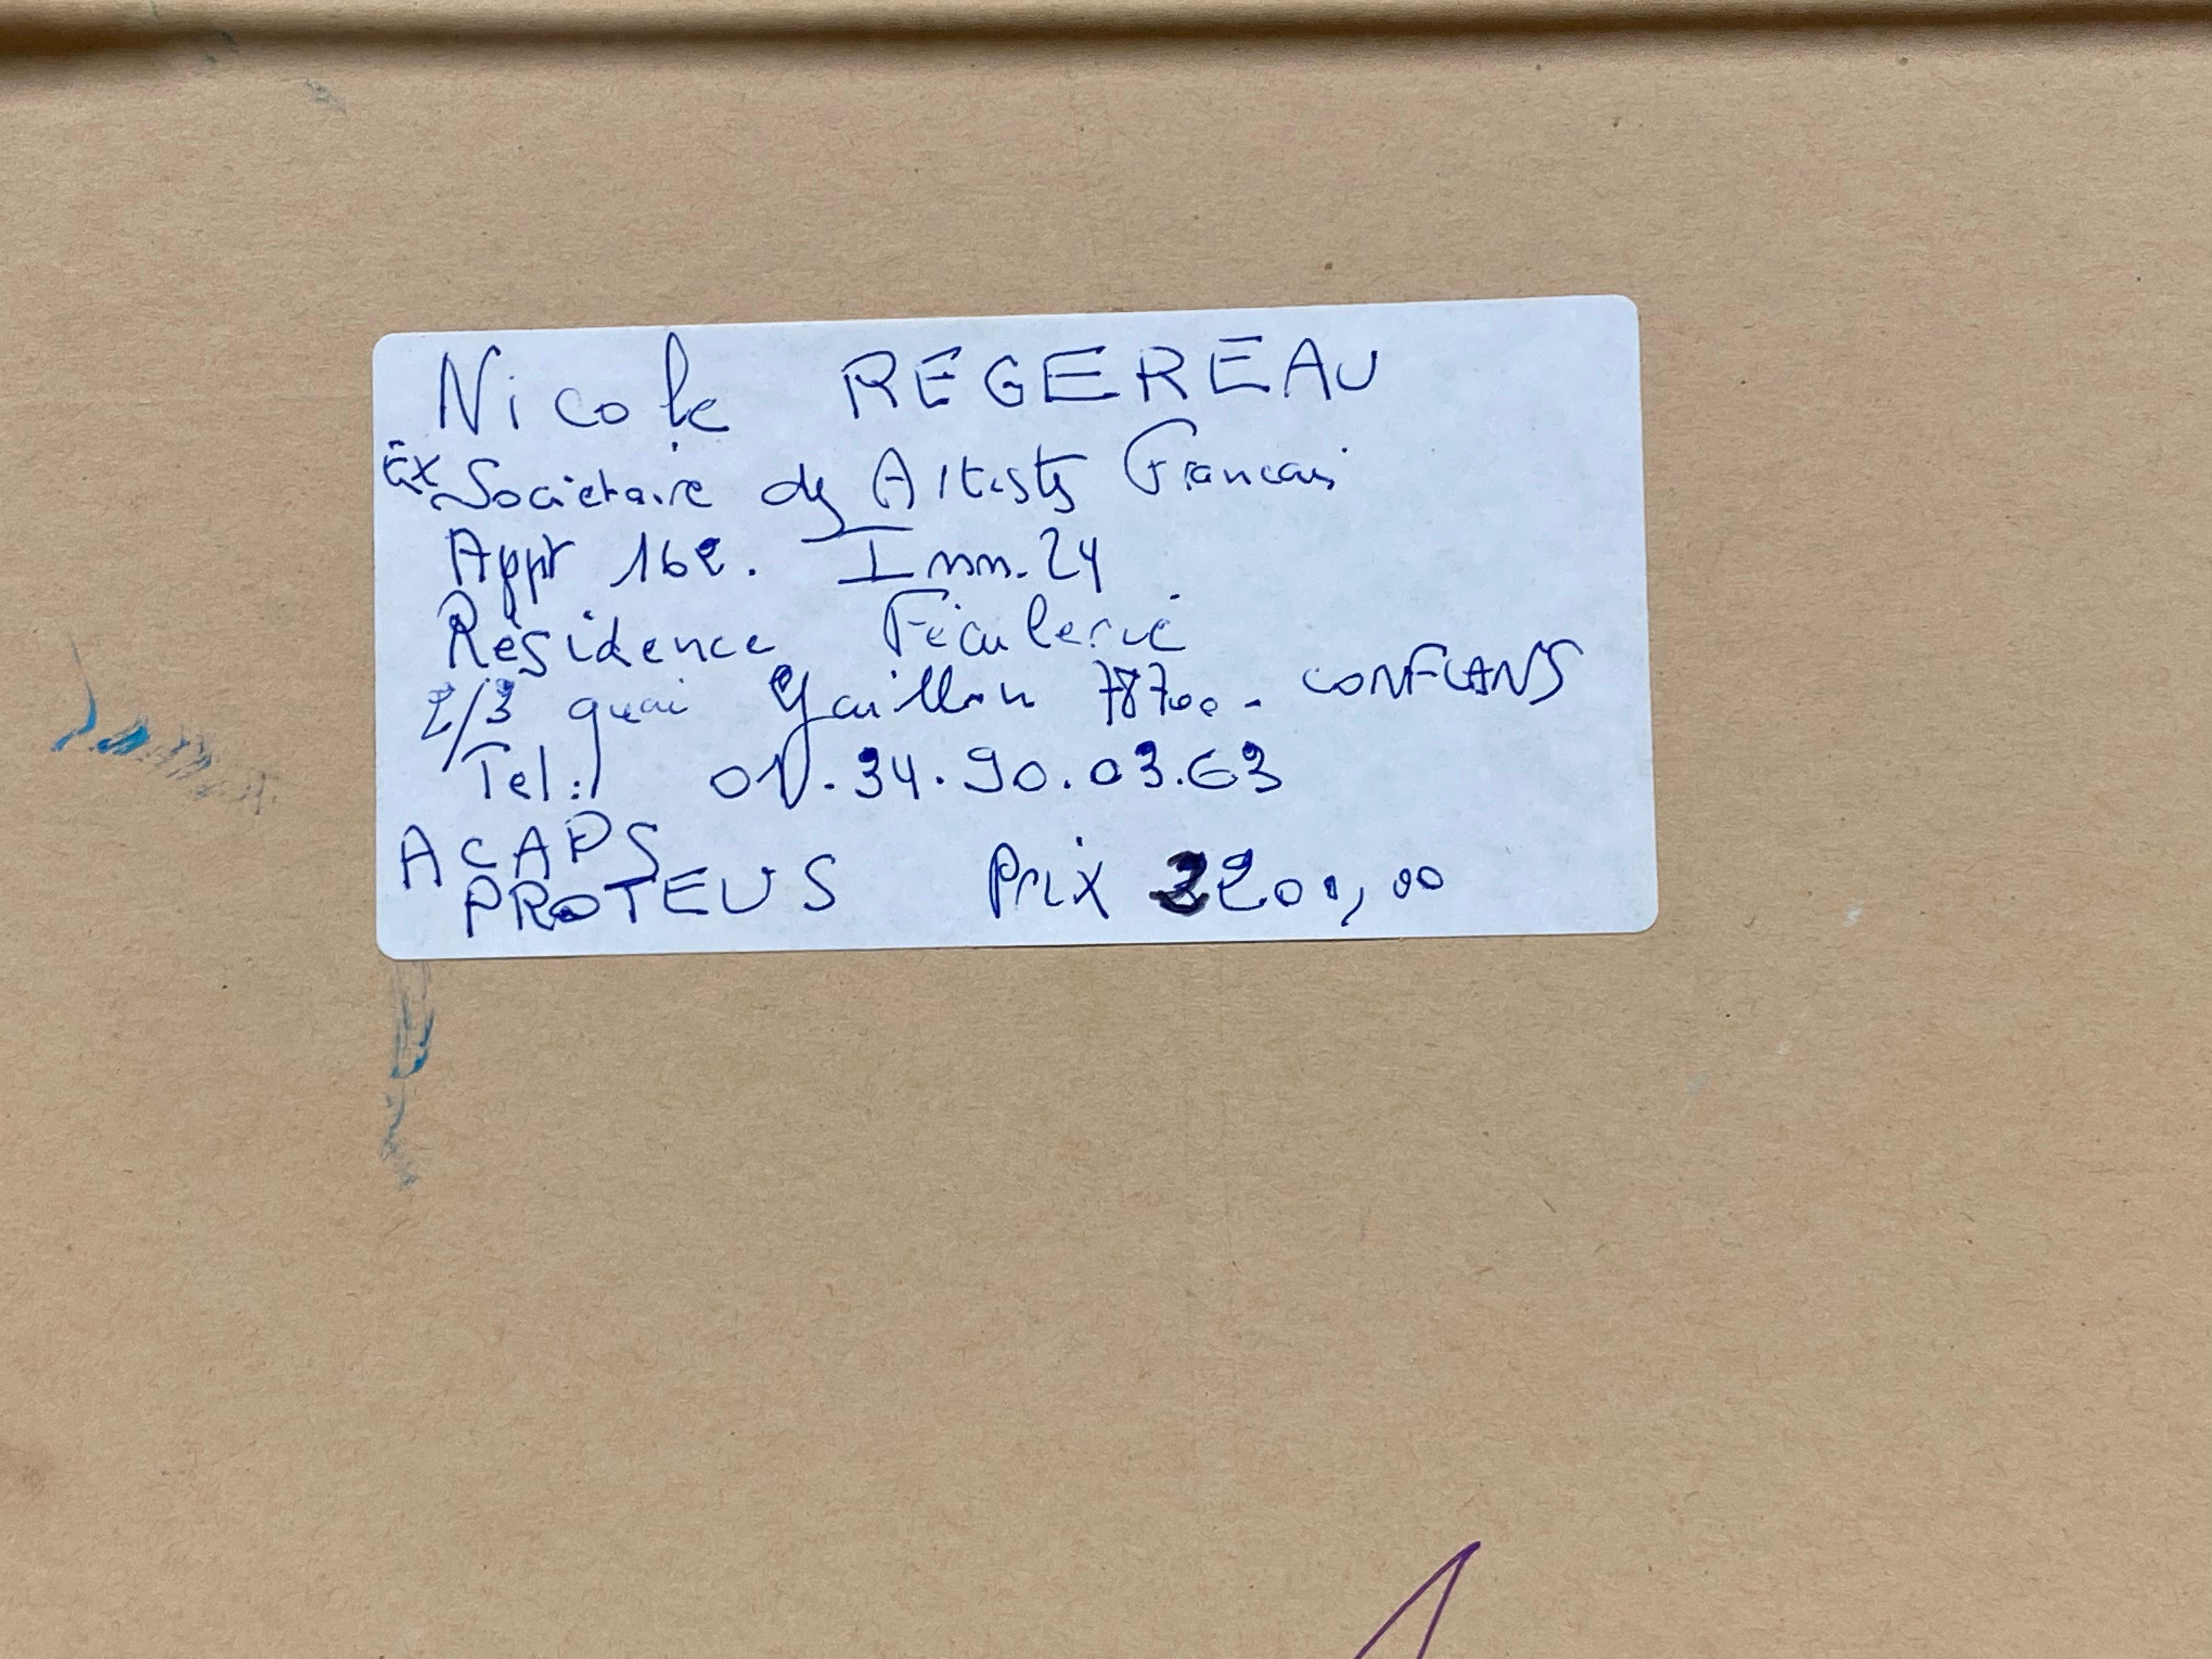 Nicole REGEREAU
Ex Sociétaire des Artistes Francais
Appt 162. Imm. 24
Résidence Féculerie
2/3 quai Gaillon 78700 - CONFLANS
Tel: 01.34.90.03.63
ACAPS
PROTEUS Prix 2200,00